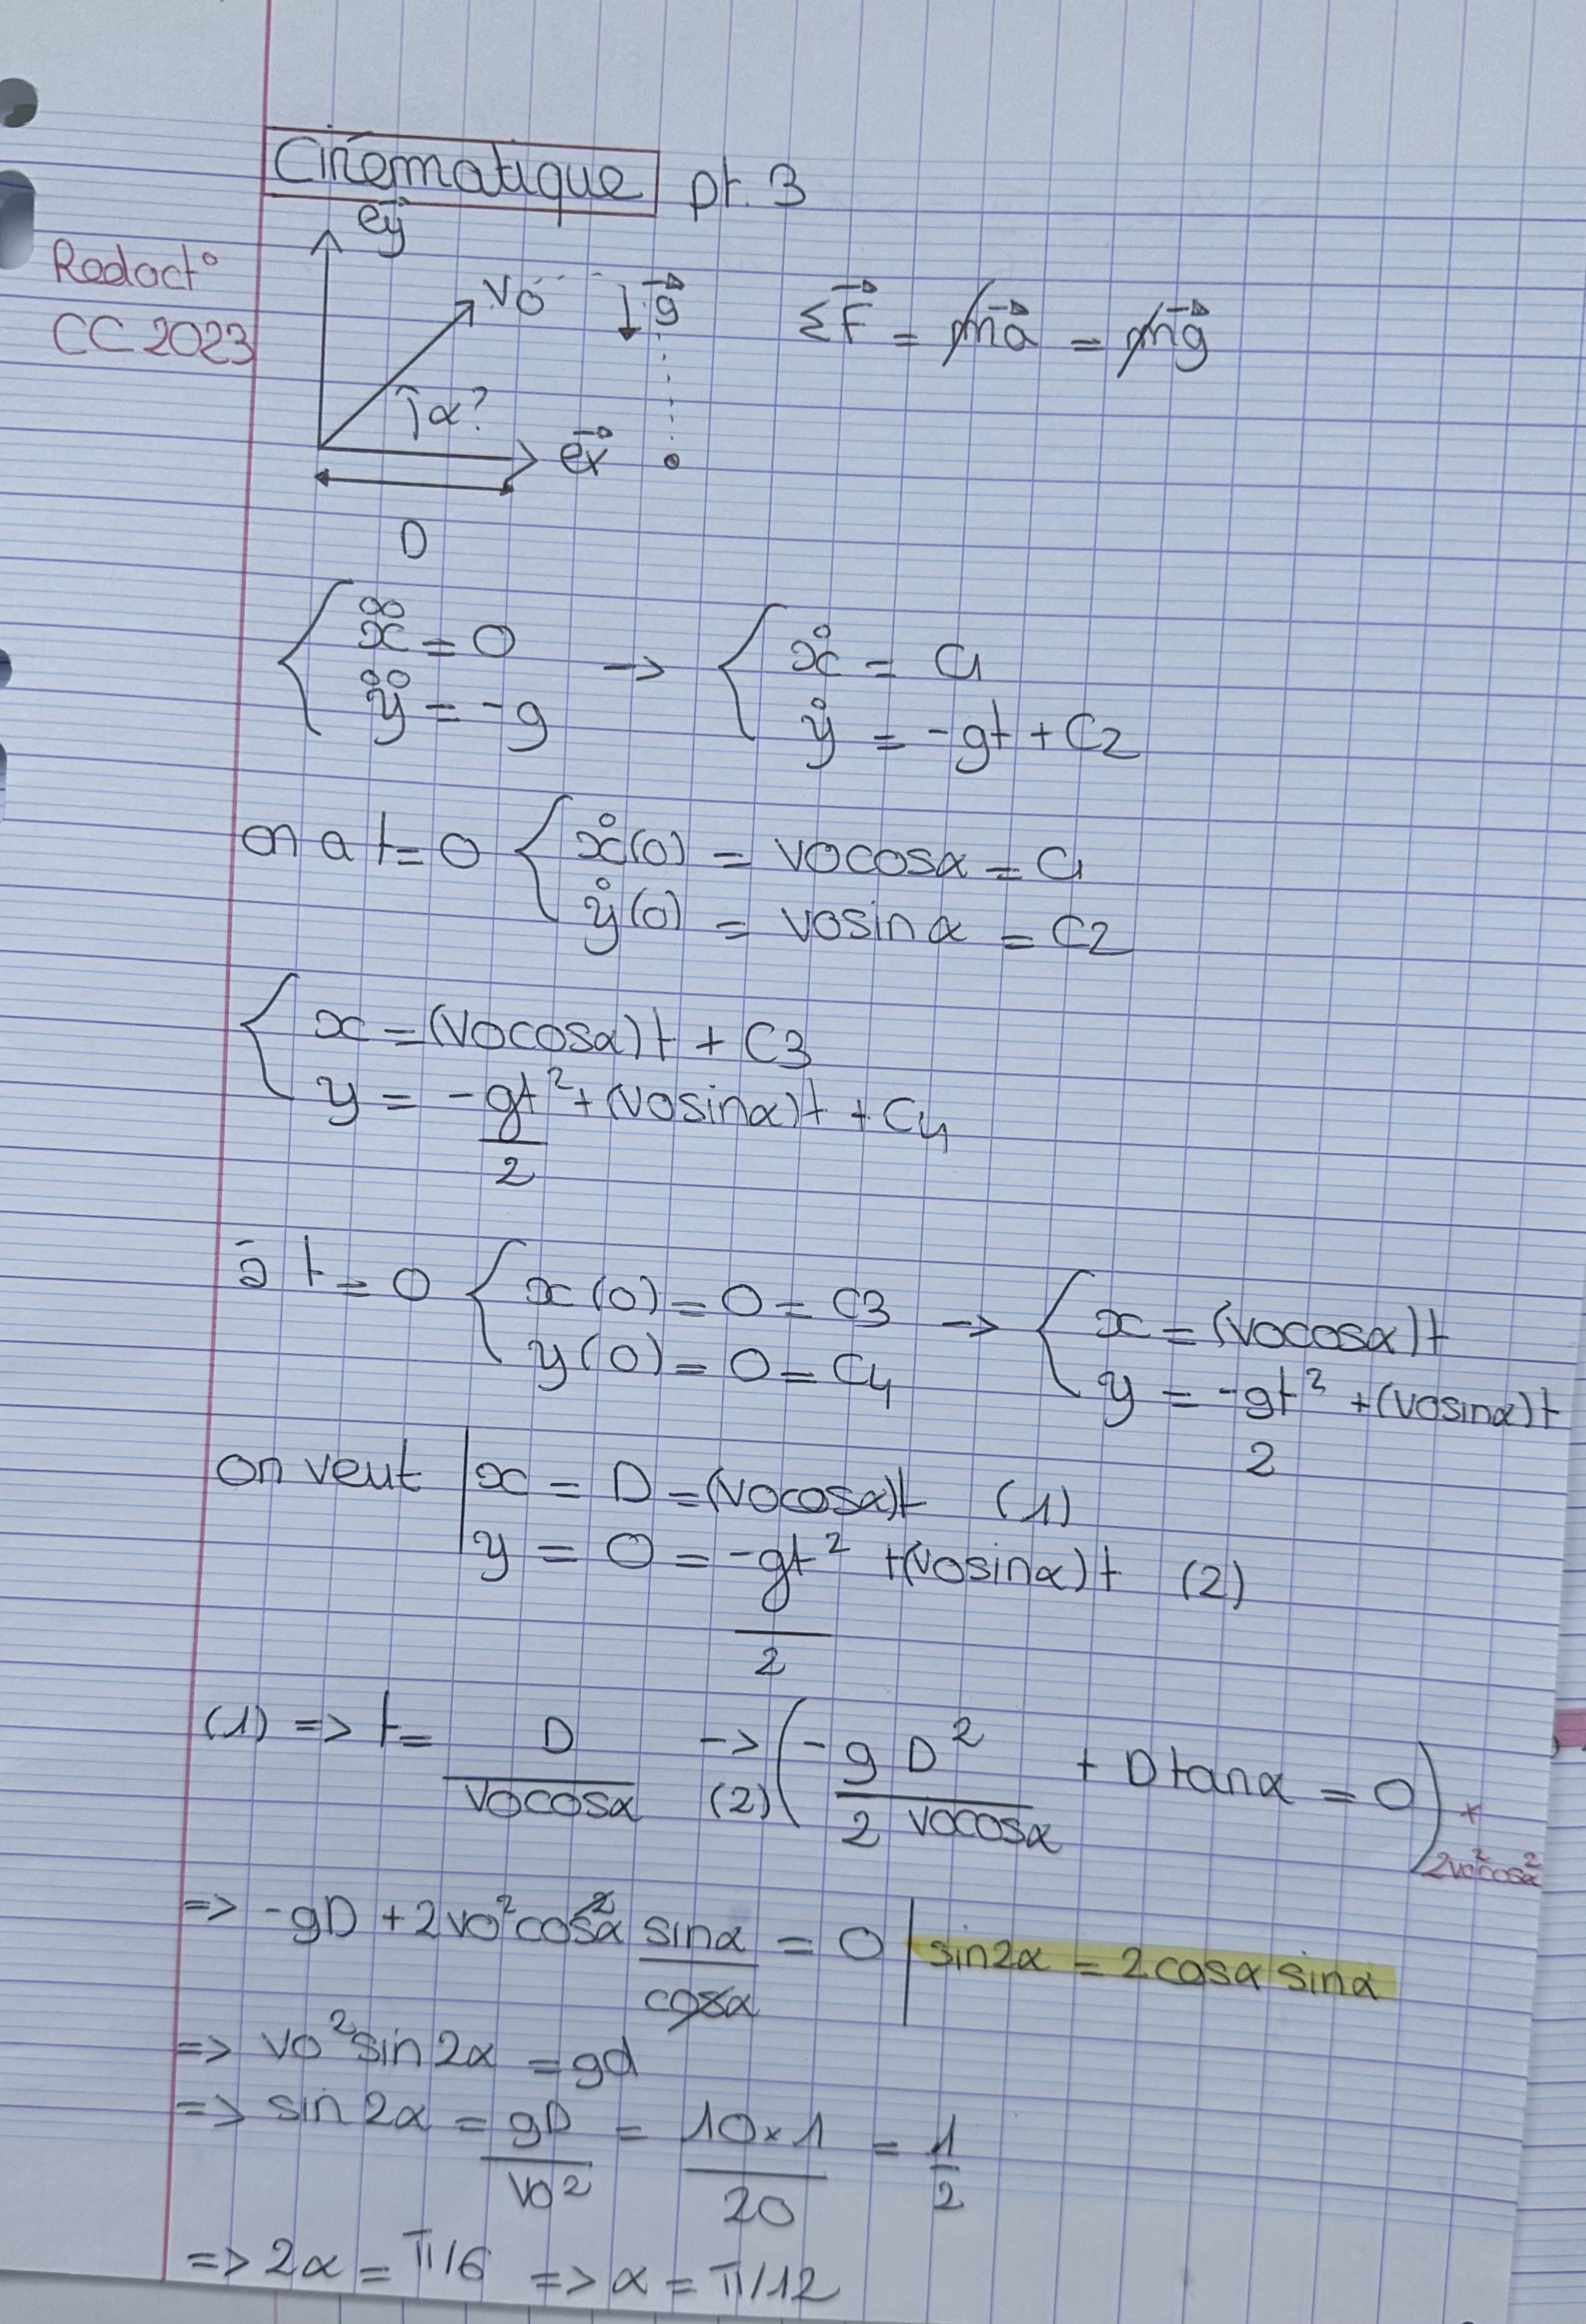 Cinématique pt. 3
Redact°
CC 2023
ey
v0
g
ΣF = ma = mg
α?
ex
D
{ ẍ = 0
ÿ = -g → { ẋ = C1
ẏ = -gt + C2
on a t = 0 { ẋ(0) = v0cosα = C1
ẏ(0) = v0sinα = C2
{ x = (v0cosα)t + C3
y = -gt²/2 + (v0sinα)t + C4
à t = 0 { x(0) = 0 = C3
y(0) = 0 = C4 → { x = (v0cosα)t
y = -gt²/2 + (v0sinα)t
on veut | x = D = (v0cosα)t (1)
y = 0 = -gt²/2 + (v0sinα)t (2)
(1) => t = D/v0cosα -> (2) ( -g D²/2 v0cosα + Dtanα = 0 ) × 2v0²cosα²
=> -gD + 2v0²cos²α sinα/cosα = 0 | sin2α = 2cosα sinα
=> v0²sin2α = gd
=> sin2α = gD/v0² = 10×1/20 = 1/2
=> 2α = π/6 => α = π/12